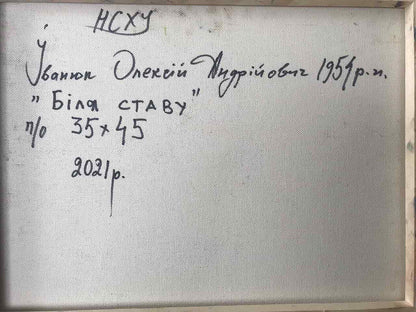 НСХУ
Іванюк Олексій Андрійович 1954 р.н.
"Біля ставу"
п/о 35х45
2021 р.